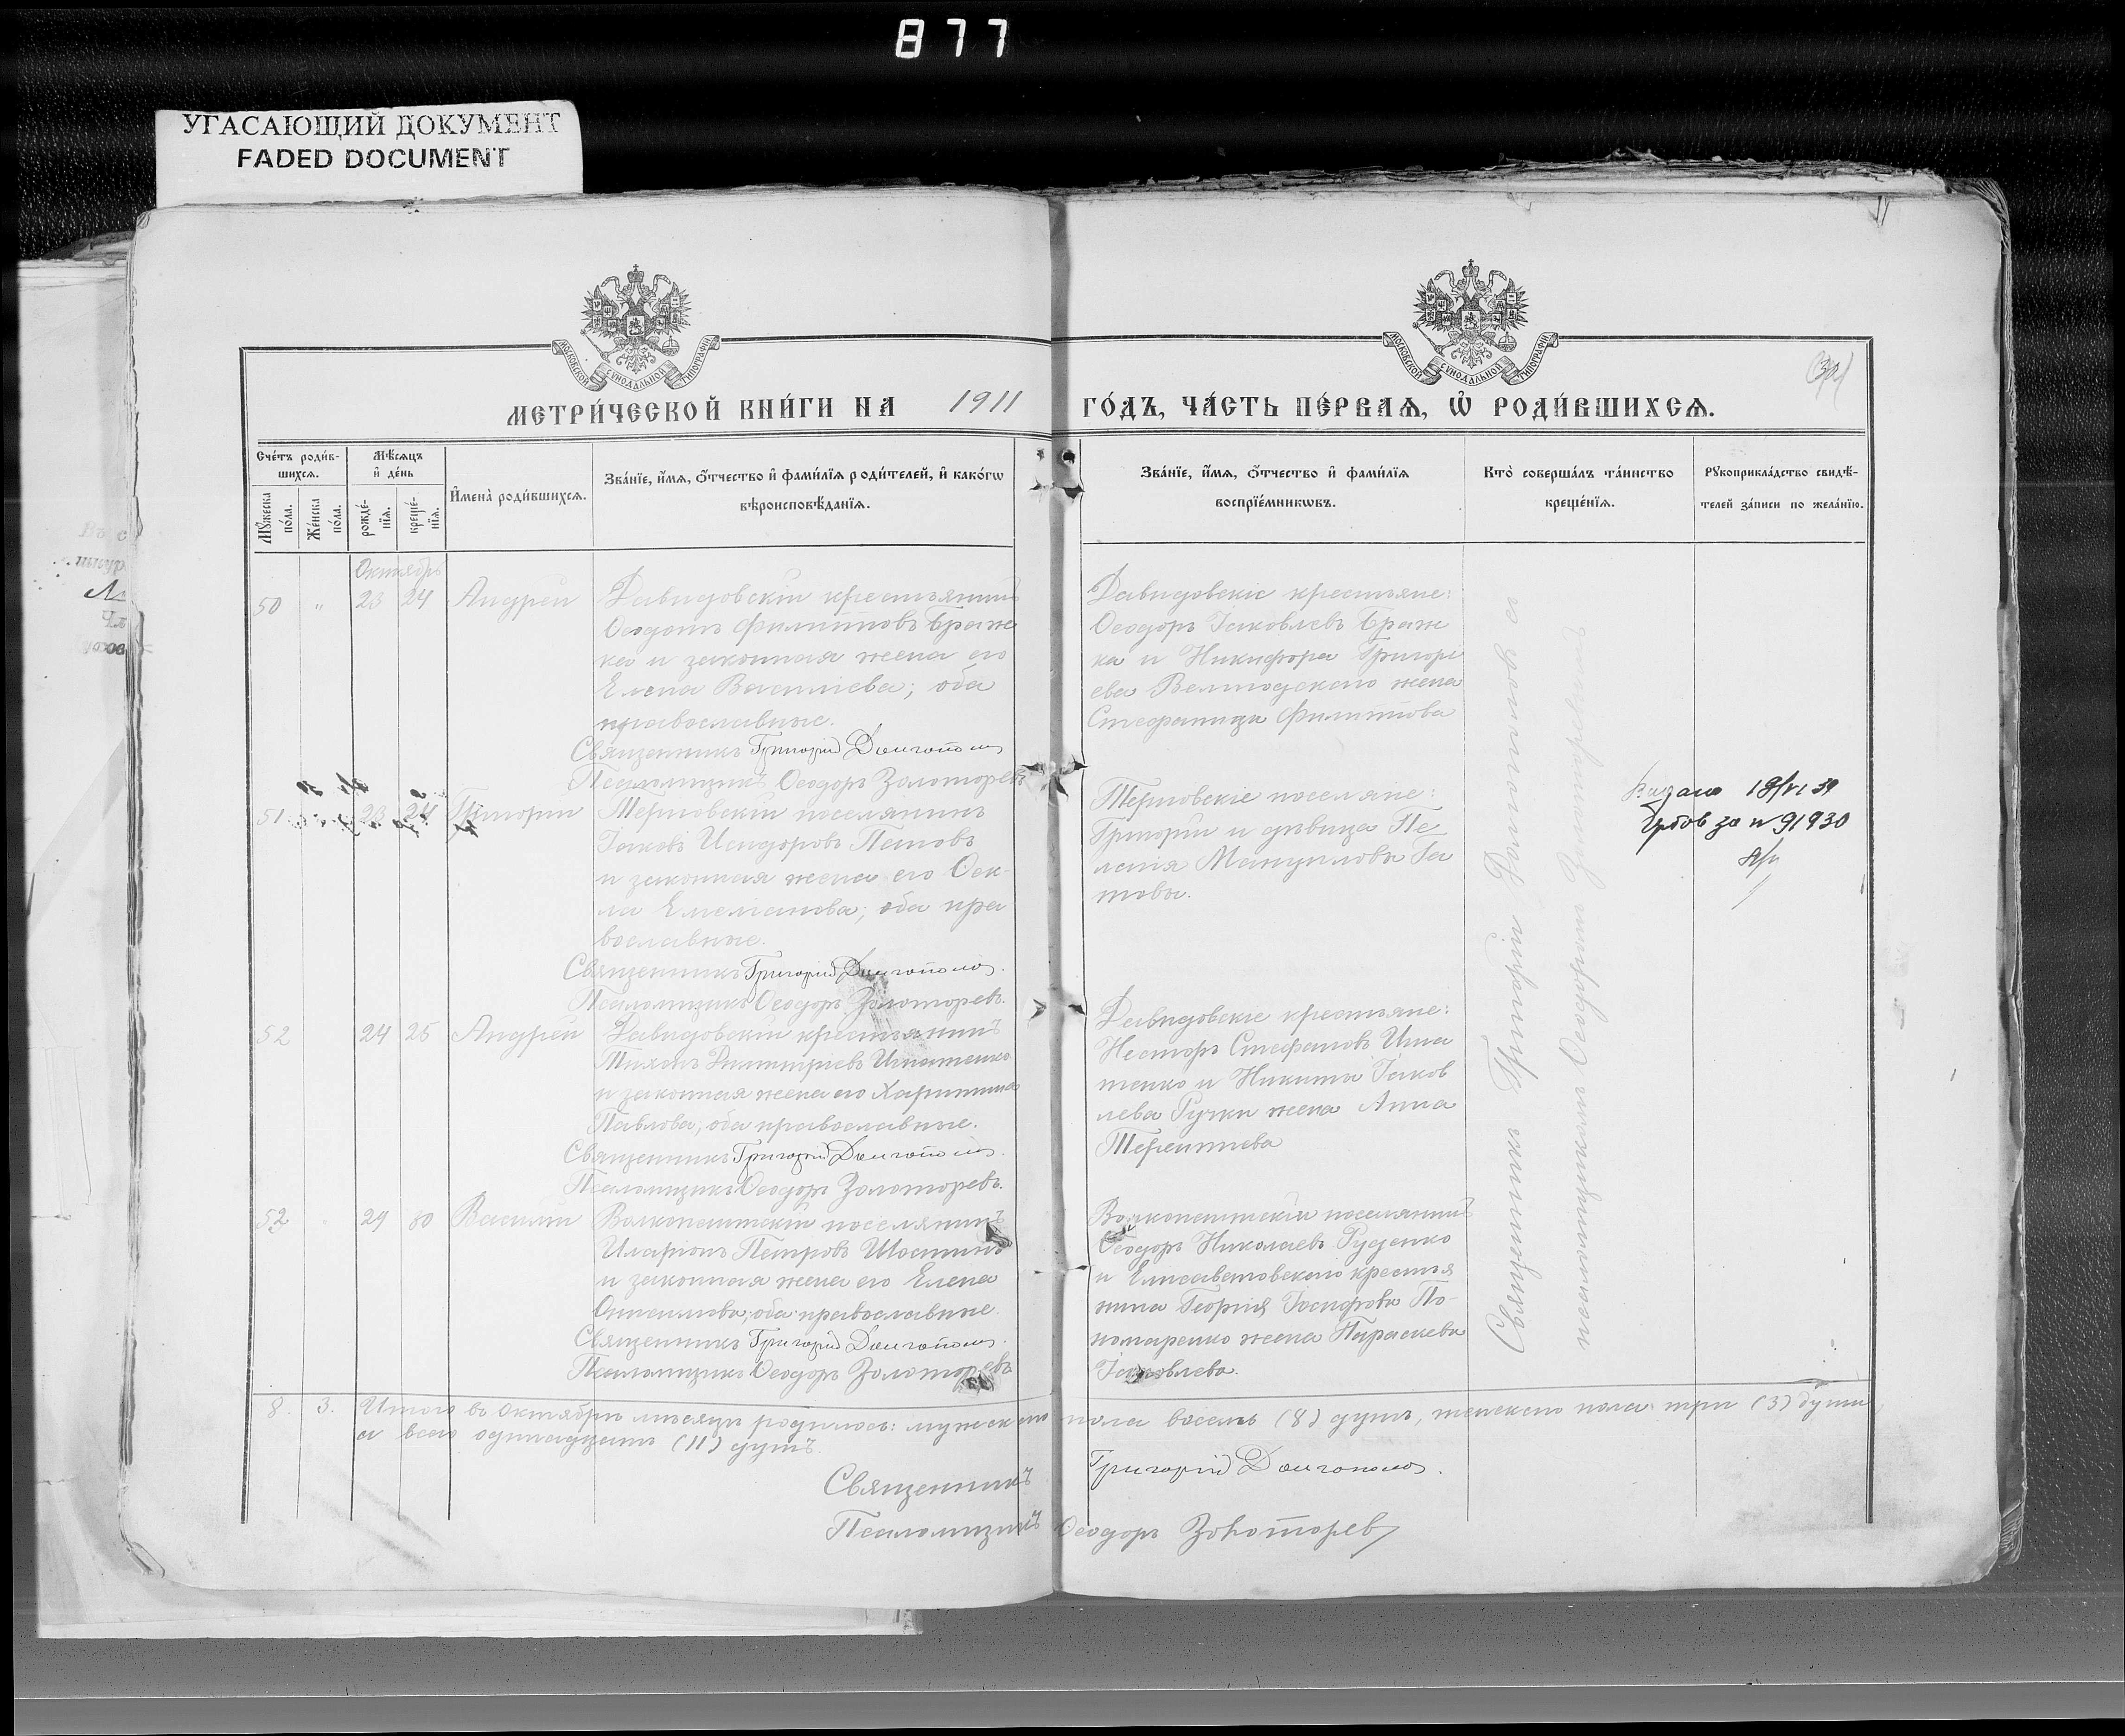 877
УГАСАЮЩИЙ ДОКУМЕНТ
FADED DOCUMENT
МОСКОВСКОЙ СѴНОДАЛЬНОЙ ТИПОГРАФІИ
МОСКОВСКОЙ СѴНОДАЛЬНОЙ ТИПОГРАФІИ
МЕТРИ́ЧЕСКОЙ КНИ́ГИ НА 1911 ГО́ДЪ, ЧА́СТЬ ПЕ́РВАѦ, Ѡ҆ РОДИ́ВШИХСѦ.
Сче́тъ роди́в-
шихсѧ.
Мꙋ́жеска по́ла.
Же́нска по́ла.
Мѣ́сѧцъ
и҆ де́нь
рожде́-
нїѧ.
креще́-
нїѧ.
И҆мена̀ роди́вшихсѧ.
Зва́нїе, и҆́мѧ, ѻ҆́тчество и҆ фами́лїѧ роди́телей, и҆ како́гѡ
вѣроисповѣ́данїѧ.
Зва́нїе, и҆́мѧ, ѻ҆́тчество и҆ фами́лїѧ
воспрїе́мникѡвъ.
Кто̀ соверша́лъ та́инство
креще́нїѧ.
Рꙋкоприкла́дство свидѣ́-
телей за́писи по жела́нїю.
Октябрь
50 " 23 24 Андрей
Давидовскій крестьянинъ
Ѳеодотъ Филипповъ Браж
ка и законная жена его
Елена Васильева; оба
православные.
Священникъ Григорій Долгополовъ
Псаломщикъ Ѳеодоръ Золоторевъ
Давидовскіе крестьяне:
Ѳеодоръ Іаковлевъ Браж
ка и Никифора Григорь
ева Великодского жена
Стефанида Филиппова
51 23 24 Григорій
Терновскій поселянинъ
Іаковъ Исидоровъ Петовъ
и законная жена его Ѳек-
ла Емельянова; оба пра
вославные.
Священникъ Григорій Долгополовъ.
Псаломщикъ Ѳеодоръ Золоторевъ.
Терновскіе поселяне:
Григорій и дѣвица Пе
лагія Мануиловы Га
товы.
Видано 18/VI 39
за № 91930
52 24 25 Андрей
Давидовскій крестьянинъ
Тихонъ Димитріевъ Игнатенко
и законная жена его Харитина
Павлова; оба православные.
Священникъ Григорій Долгополовъ.
Псаломщикъ Ѳеодоръ Золоторевъ.
Давидовскіе крестьяне:
Несторъ Стефановъ Игна
тенко и Никиты Іаков
лева Ручки жена Анна
Терентіева
52 29 30 Василій
Волкопештскій поселянинъ
Иларіонъ Петровъ Шостинъ
и законная жена его Елена
Онисимова; оба православные.
Священникъ Григорій Долгополовъ.
Псаломщикъ Ѳеодоръ Золоторевъ
Волкопештскій поселянинъ
Ѳеодоръ Николаевъ Руденко
и Елисаветовского крестья
нина Георгія Іосифова По-
номаренко жена Параскева
Іаковлева.
Священникъ Григорій Долгополовъ съ
псаломщикомъ Ѳеодоромъ Золоторевымъ
8. 3. Итого въ Октябрѣ мѣсяцѣ родилось: мужского пола восемь (8) душъ, женского пола три (3) души,
а всего одинадцать (11) душъ.
Священникъ Григорій Долгополовъ.
Псаломщикъ Ѳеодоръ Золоторевъ